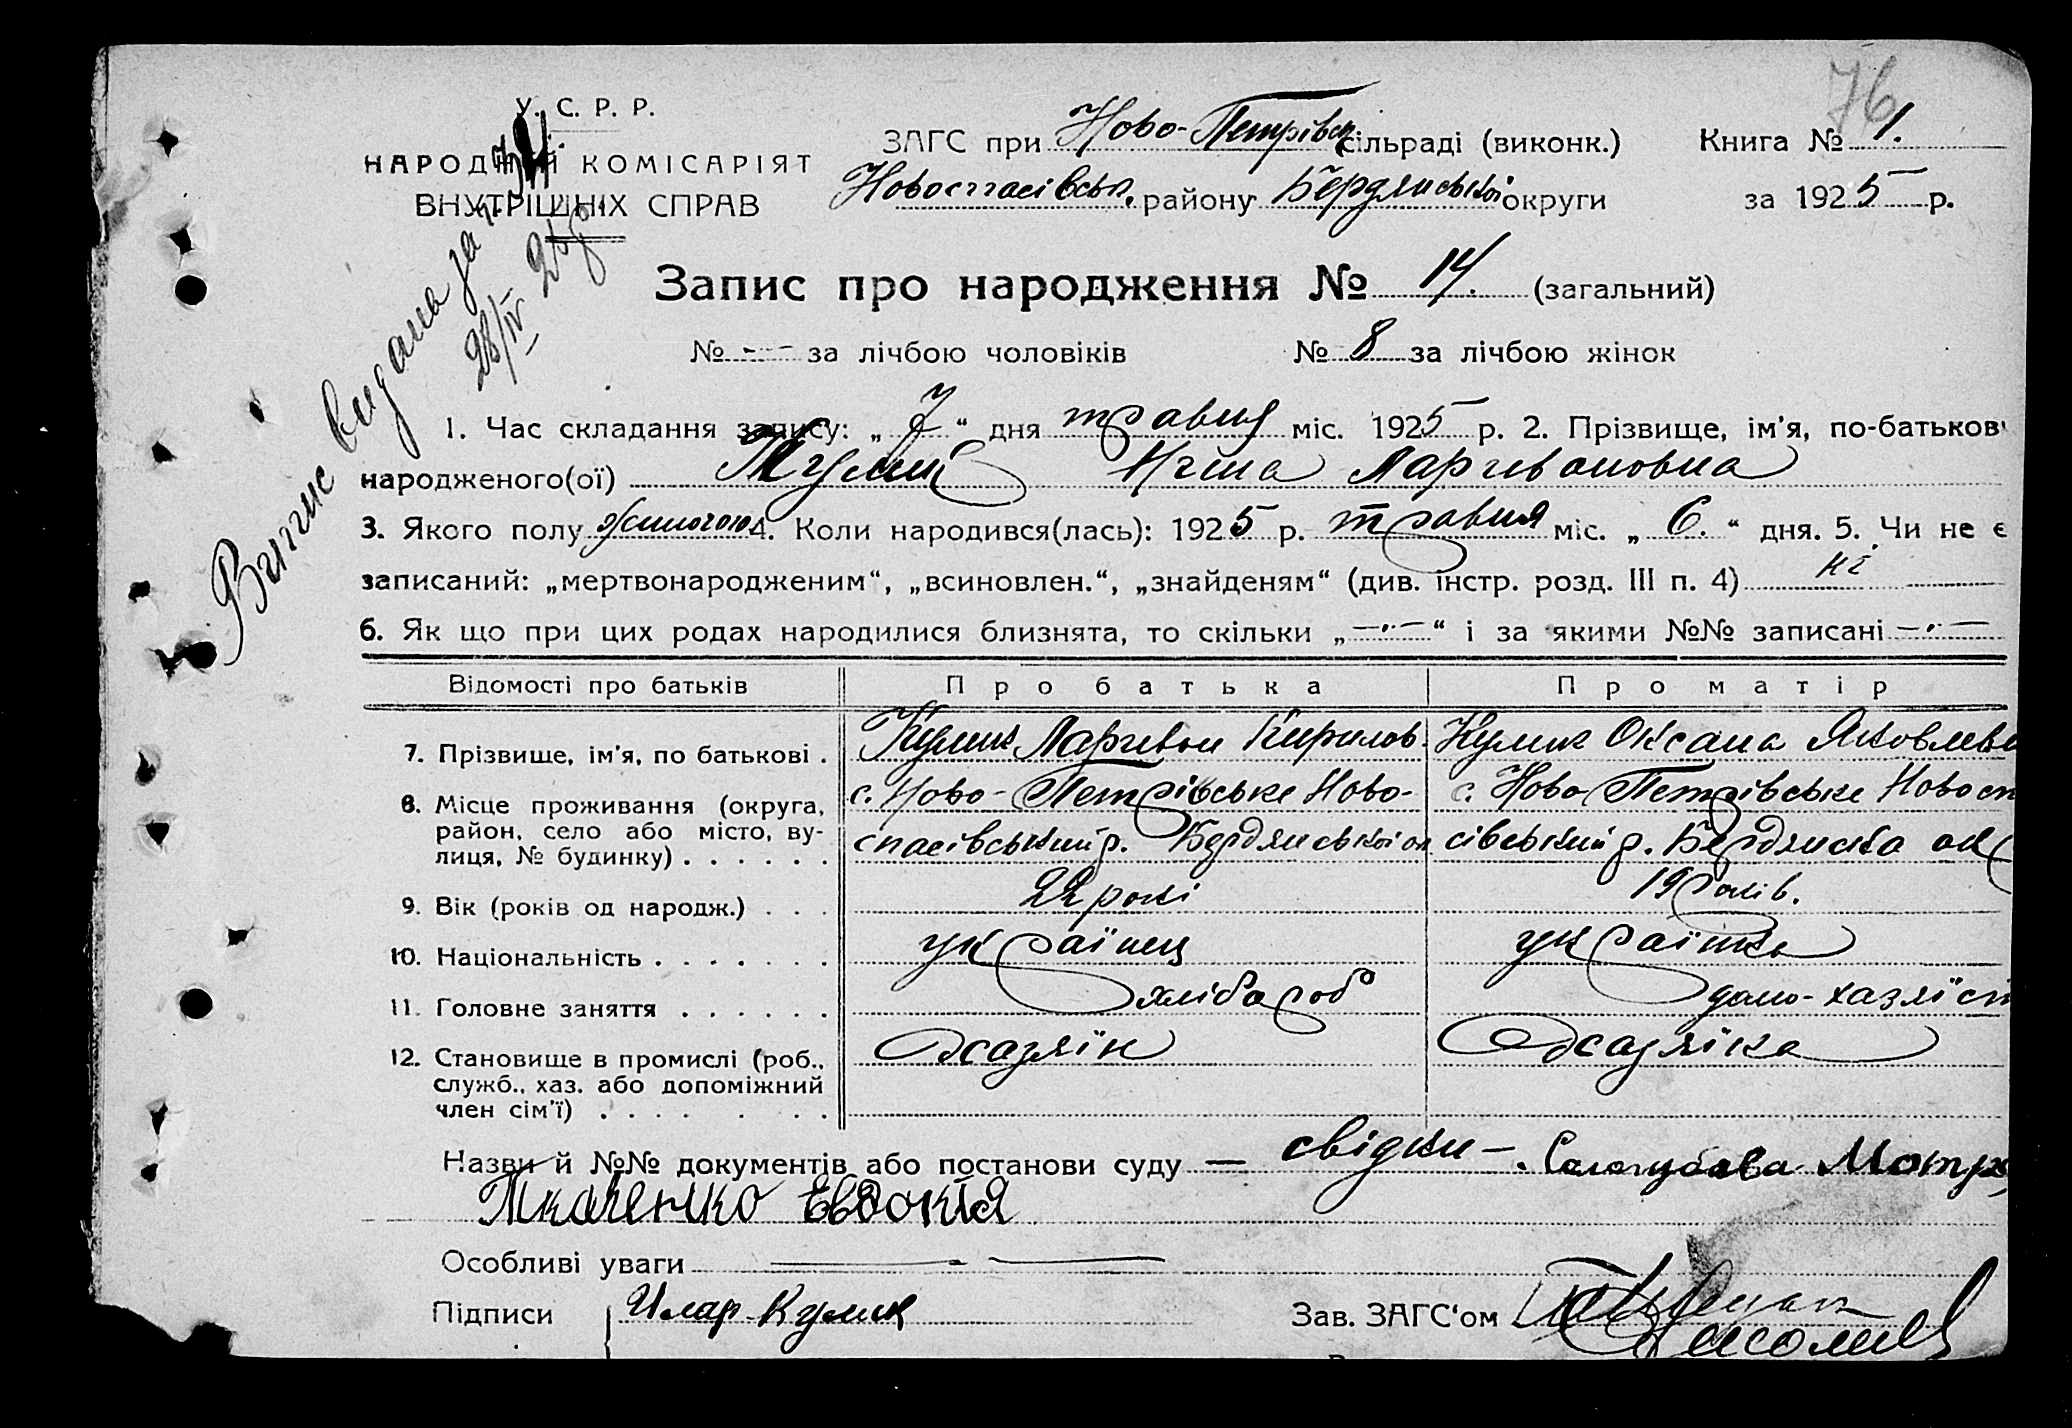 76
У. С. Р. Р.
НАРОДНИЙ КОМІСАРІЯТ
ВНУТРІШНІХ СПРАВ
ЗАГС при Ново-Петрівск. сільраді (виконк.) Книга № 1.
Новоспасівськ. району Бердянської округи за 1925 р.
Випис видана за №
28/IV
Запис про народження № 14. (загальний)
№ - - за лічбою чоловіків № 8 за лічбою жінок
1. Час складання запису: „ 7 “ дня травня міс. 1925 р. 2. Прізвище, ім'я, по-батькові
народженого(ої) Кулик Ларивоновна
3. Якого полу жіночого 4. Коли народився(лась): 1925 р. травня міс. „ 6. “ дня. 5. Чи не є
записаний: „мертвонародженим“, „всиновлен.“, „знайденям“ (див. інстр. розд. III п. 4) ні
6. Як що при цих родах народилися близнята, то скільки „—.—“ і за якими №№ записані —.—
Відомості про батьків Про батька Про матір
7. Прізвище, ім'я, по батькові . Кулик Ларивон Кирилов. Кулик Оксана Яковлевн
8. Місце проживання (округа, с. Ново-Петрівське Ново- с. Ново Петрівське Новосп
район, село або місто, ву- спасівський р. Бердянської ок сівський р. Бердянська ок
лиця, № будинку) . . . . . .
9. Вік (років од народж.) . . . 22 рокі 19 років.
10. Національність . . . . . . . українец українка
11. Головне заняття . . . . . . хлібороб дома-хазяїст
12. Становище в промислі (роб., хазяїн хазяїка
служб., хаз. або допоміжний
член сім'ї) . . . . . . . .
Назви й №№ документів або постанови суду — свідки — Мотря
Ткаченко Евдокія
Особливі уваги
Підписи Илар Кулик Зав. ЗАГС'ом